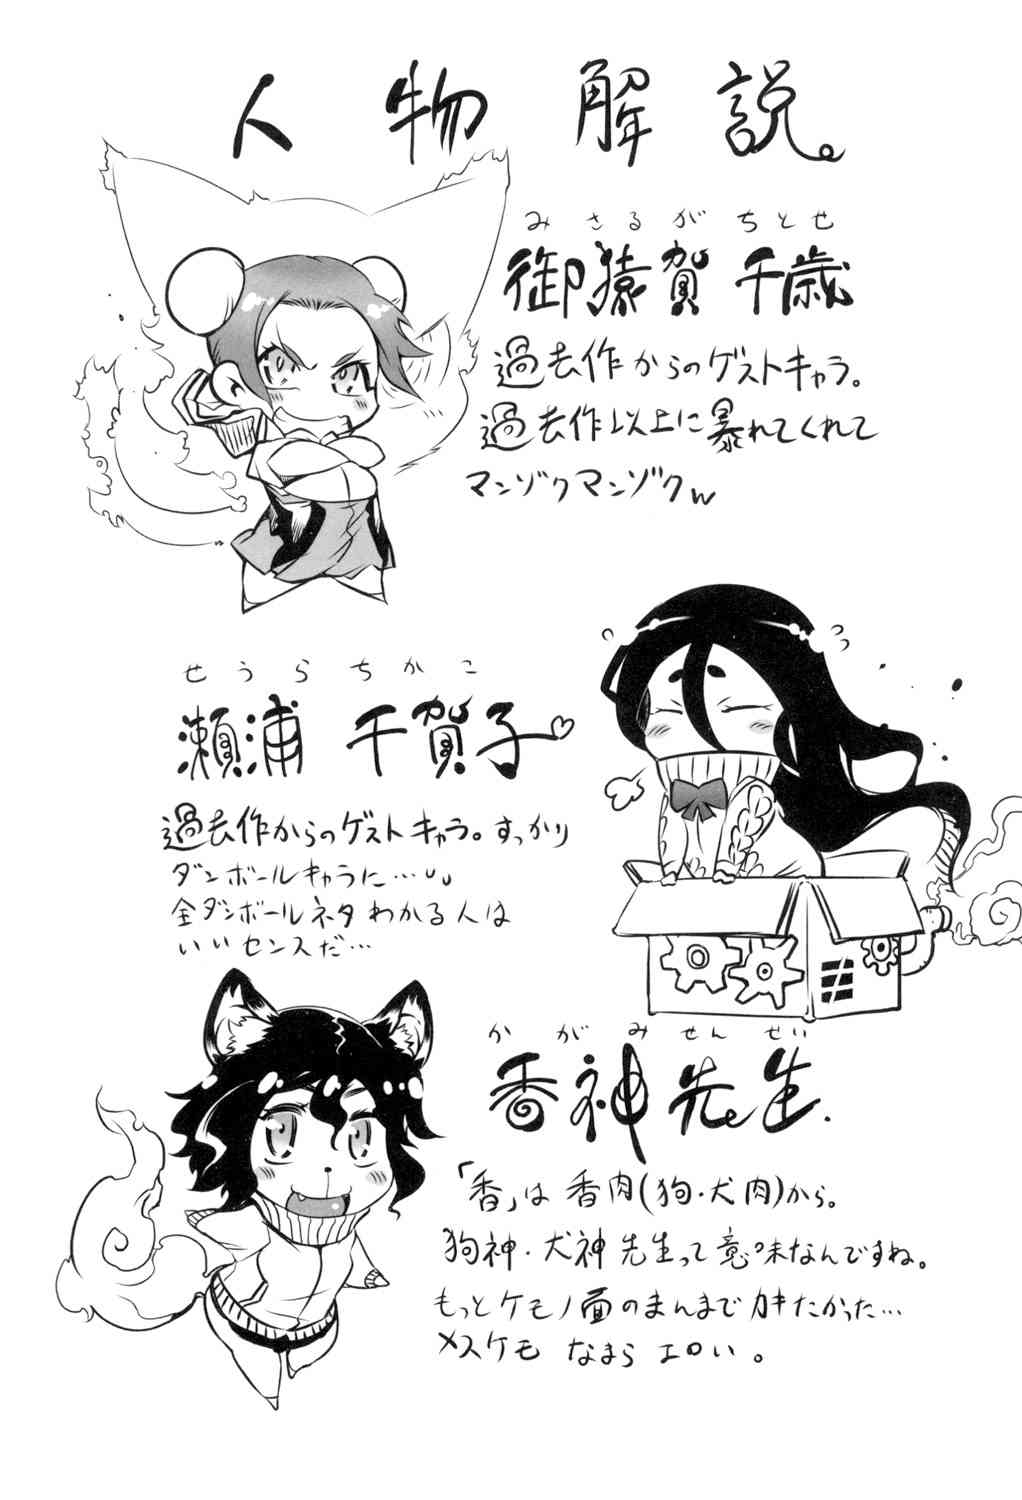 人物解説。
みさるがちとせ
御猿賀 千歳
過去作からのゲストキャラ。
過去作以上に暴れてくれて
マンゾクマンゾクw
せうらちかこ
瀬浦 千賀子♡
過去作からのゲストキャラ。すっかり
ダンボールキャラに…
全ダンボールネタわかる人は
いいセンスだ…
かがみせんせい
香神先生.
「香」は香肉(狗・犬肉)から。
狗神・犬神先生って意味なんですね。
もっとケモノ面のまんまでカキたかった…
メスケモ なまら エロい。